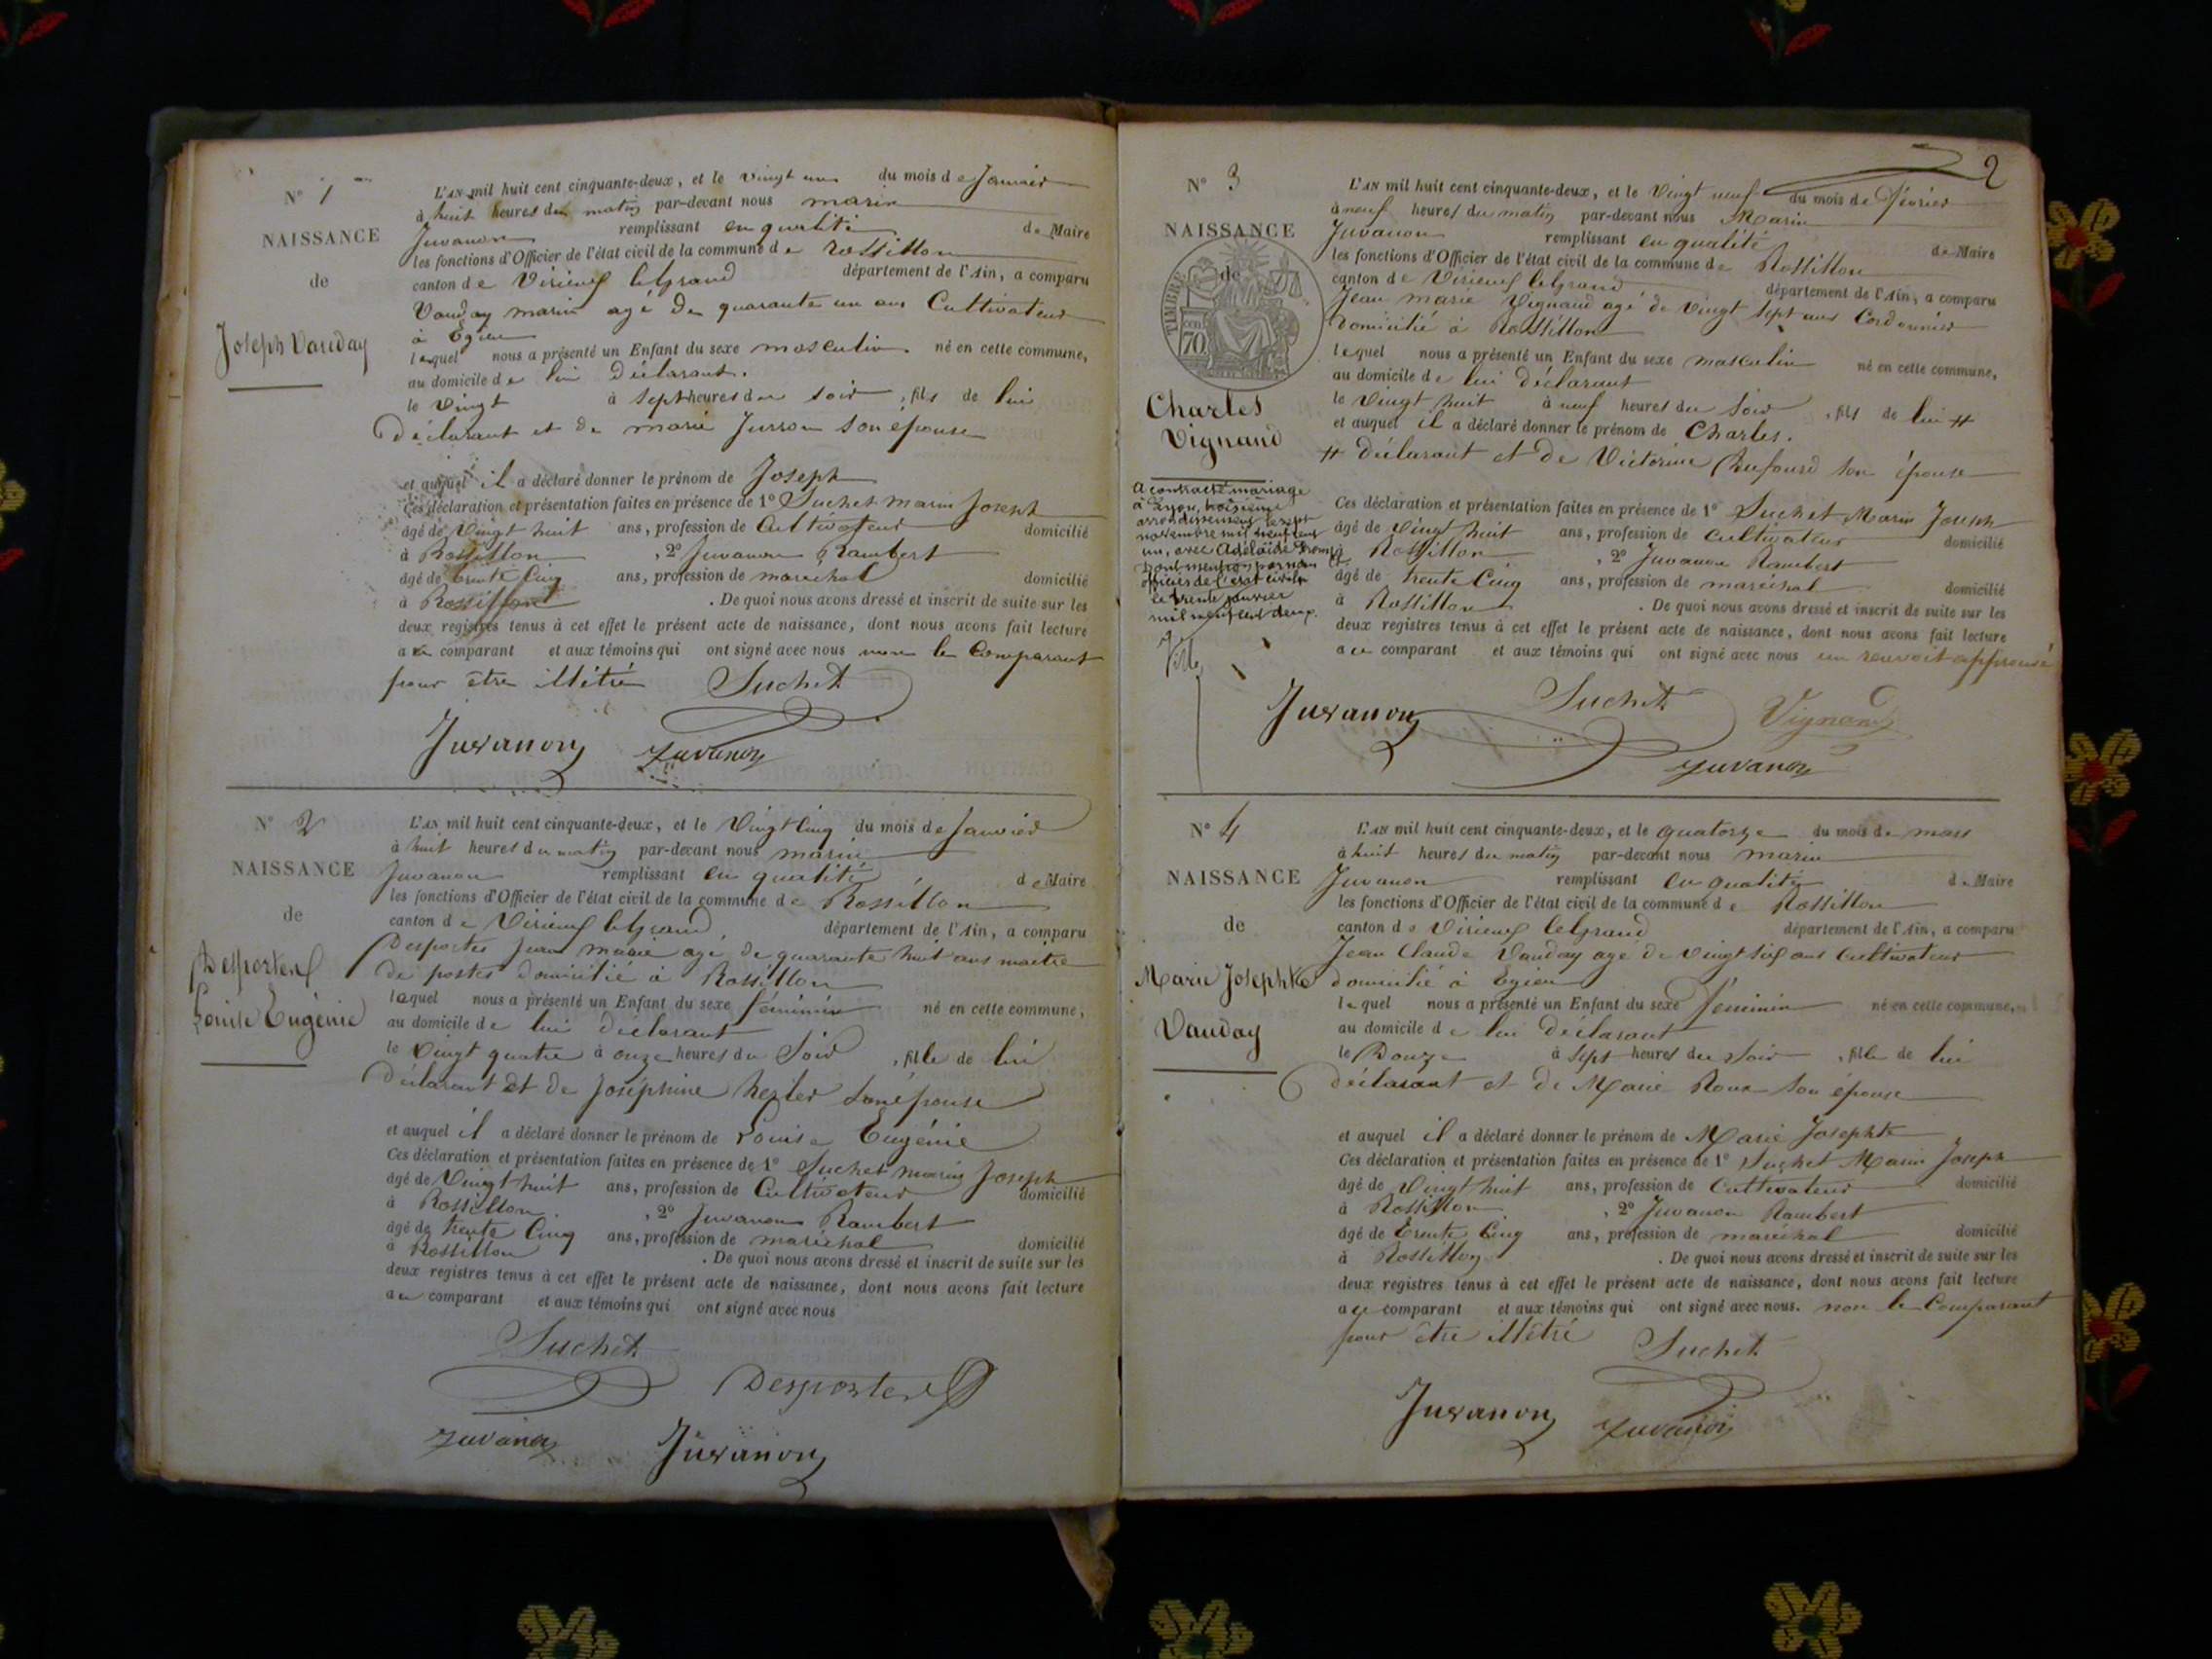 N° 1
NAISSANCE
de
Joseph Vauday
L'AN mil huit cent cinquante-deux, et le vingt un du mois de Janvier
à huit heures du matin par-devant nous marin
Juvanon remplissant en qualité de Maire
les fonctions d'Officier de l'état civil de la commune de Rossillon
canton de Virieux legrand département de l'Ain, a comparu
Vauday marin agé de quarante un ans Cultivateur
à Egieu
lequel nous a présenté un Enfant du sexe masculin né en cette commune,
au domicile de lui déclarant.
le vingt à Sept heures du soir, fils de lui
déclarant et de marie son épouse
et auquel il a déclaré donner le prénom de Joseph
Ces déclaration et présentation faites en présence de 1° Suchet Marin Joseph
âgé de Vingt huit ans, profession de Cultivateur domicilié
à Rossillon, 2° Juvanon Rambert
âgé de trente Cinq ans, profession de maréchal domicilié
à Rossillon. De quoi nous avons dressé et inscrit de suite sur les
deux registres tenus à cet effet le présent acte de naissance, dont nous avons fait lecture
au comparant et aux témoins qui ont signé avec nous non le Comparant
pour être illétré Suchet
Juvanon Juvanon
N° 2
NAISSANCE
de
Desportes
Louise Eugénie
L'AN mil huit cent cinquante-deux, et le Vingt Cinq du mois de Janvier
à huit heures du matin par-devant nous marin
Juvanon remplissant en qualité de Maire
les fonctions d'Officier de l'état civil de la commune de Rossillon
canton de Virieux legrand département de l'Ain, a comparu
Desportes Jean marie agé de quarante huit ans maitre
de postes domicilié à Rossillon
lequel nous a présenté un Enfant du sexe féminin né en cette commune,
au domicile de lui déclarant
le Vingt quatre à onze heures du Soir, fille de lui
déclarant et de Joséphine son épouse
et auquel il a déclaré donner le prénom de Louise Eugénie
Ces déclaration et présentation faites en présence de 1° Suchet Marin Joseph
âgé de Vingt huit ans, profession de Cultivateur domicilié
à Rossillon, 2° Juvanon Rambert
âgé de trente Cinq ans, profession de maréchal domicilié
à Rossillon. De quoi nous avons dressé et inscrit de suite sur les
deux registres tenus à cet effet le présent acte de naissance, dont nous avons fait lecture
au comparant et aux témoins qui ont signé avec nous
Suchet
Desportes
Juvanon Juvanon
2
N° 3
NAISSANCE
de
TIMBRE
70
Charles
Vignand
a contracté mariage
à Lyon, troisième
arrondissement le sept
novembre mil neuf cent
un, avec Adélaïde
Dont mention par nous
officier de l'état civil
le trente janvier
mil neuf cent deux.
L'AN mil huit cent cinquante-deux, et le Vingt neuf du mois de Février
à neuf heures du matin par-devant nous Marin
Juvanon remplissant en qualité de Maire
les fonctions d'Officier de l'état civil de la commune de Rossillon
canton de Virieux legrand département de l'Ain, a comparu
Jean marie Vignand agé de Vingt Sept ans Cordonnier
domicilié à Rossillon
lequel nous a présenté un Enfant du sexe masculin né en cette commune,
au domicile de lui déclarant
le Vingt huit à neuf heures du Soir, fils de lui #
et auquel il a déclaré donner le prénom de Charles.
# déclarant et de Victorine son épouse
Ces déclaration et présentation faites en présence de 1° Suchet Marin Joseph
âgé de Vingt huit ans, profession de Cultivateur domicilié
à Rossillon, 2° Juvanon Rambert
âgé de trente Cinq ans, profession de maréchal domicilié
à Rossillon. De quoi nous avons dressé et inscrit de suite sur les
deux registres tenus à cet effet le présent acte de naissance, dont nous avons fait lecture
au comparant et aux témoins qui ont signé avec nous un renvoit approuvé
Suchet Vignand
Juvanon Juvanon
N° 4
NAISSANCE
de
Marie Josephte
Vauday
L'AN mil huit cent cinquante-deux, et le quatorze du mois de mars
à huit heures du matin par-devant nous marin
Juvanon remplissant en qualité de Maire
les fonctions d'Officier de l'état civil de la commune de Rossillon
canton de Virieux legrand département de l'Ain, a comparu
Jean Claude Vauday agé de Vingt six ans Cultivateur
domicilié à Egieu
lequel nous a présenté un Enfant du sexe féminin né en cette commune,
au domicile de lui déclarant
le Douze à Sept heures du Soir, fille de lui
déclarant et de Marie Roux son épouse
et auquel il a déclaré donner le prénom de Marie Josephte
Ces déclaration et présentation faites en présence de 1° Suchet Marin Joseph
âgé de Vingt huit ans, profession de Cultivateur domicilié
à Rossillon, 2° Juvanon Rambert
âgé de trente Cinq ans, profession de maréchal domicilié
à Rossillon. De quoi nous avons dressé et inscrit de suite sur les
deux registres tenus à cet effet le présent acte de naissance, dont nous avons fait lecture
au comparant et aux témoins qui ont signé avec nous. non le Comparant
pour être illétré Suchet
Juvanon Juvanon